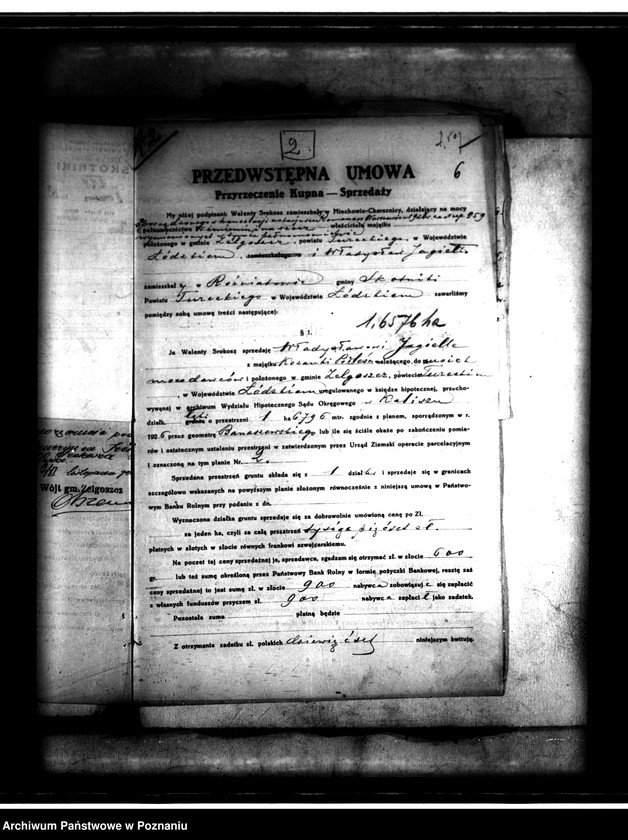 2
6
PRZEDWSTĘPNA UMOWA
Przyrzeczenie Kupna — Sprzedaży
My niżej podpisani: Walenty Srokosz zamieszkały w Miechowie-Charsznicy, działający na mocy
pełnomocnictwa właściciela majątku
położonego w gminie Zelgoszcz, powiatu Tureckiego, w Województwie
Łódzkiem, zamieszkałego i Władysław Jagiełło
zamieszkały w gminy Skotniki
Powiatu Tureckiego w Województwie Łódzkiem zawarliśmy
pomiędzy sobą umowę treści następującej:
1,6576 ha
§ 1.
Ja Walenty Srokosz sprzedaję Władysławowi Jagiełle
z majątku należącego do moich
mocodawców i położonego w gminie Zelgoszcz, powiecie Tureckim
w Województwie Łódzkiem uregulowanego w księdze hipotecznej, przecho-
wywanej w archiwum Wydziału Hipotecznego Sądu Okręgowego w Kaliszu
działk. gruntu o przestrzeni 1 ha 6796 mtr. zgodnie z planem, sporządzonym w r.
1926 przez geometrę Banaszewskiego lub ile się ściśle okaże po zakończeniu pomia-
rów i ostatecznym ustaleniu przestrzeni w zatwierdzonym przez Urząd Ziemski operacie parcelacyjnym
i oznaczoną na tym planie Nr. 2.
Sprzedana przestrzeń gruntu składa się z 1 działki i sprzedaje się w granicach
szczegółowo wskazanych na powyższym planie złożonym równocześnie z niniejszą umową w Państwo-
wym Banku Rolnym przy podaniu z dn.
Wyznaczona działka gruntu sprzedaje się za dobrowolnie umówioną cenę po Zł.
za jeden ha, czyli za całą przestrzeń tysiąc pięćset zł.
płatnych w złotych w złocie równych frankowi szwajcarskiemu.
Na poczet tej ceny sprzedażnej ja, sprzedawca, zgadzam się otrzymać zł. w złocie 600
gr. lub też sumę określoną przez Państwowy Bank Rolny w formie pożyczki Bankowej, resztę zaś
ceny sprzedażnej to jest sumę zł. w złocie 900 nabywca zobowiązuje się zapłacić
z własnych funduszów przyczem zł. 900 nabywca zapłacił jako zadatek.
Pozostała suma płatną będzie
Z otrzymanie zadatku zł. polskich dziewięćset niniejszym kwituję.
SKOTNIKI
Wójt gm. Zelgoszcz
Archiwum Państwowe w Poznaniu